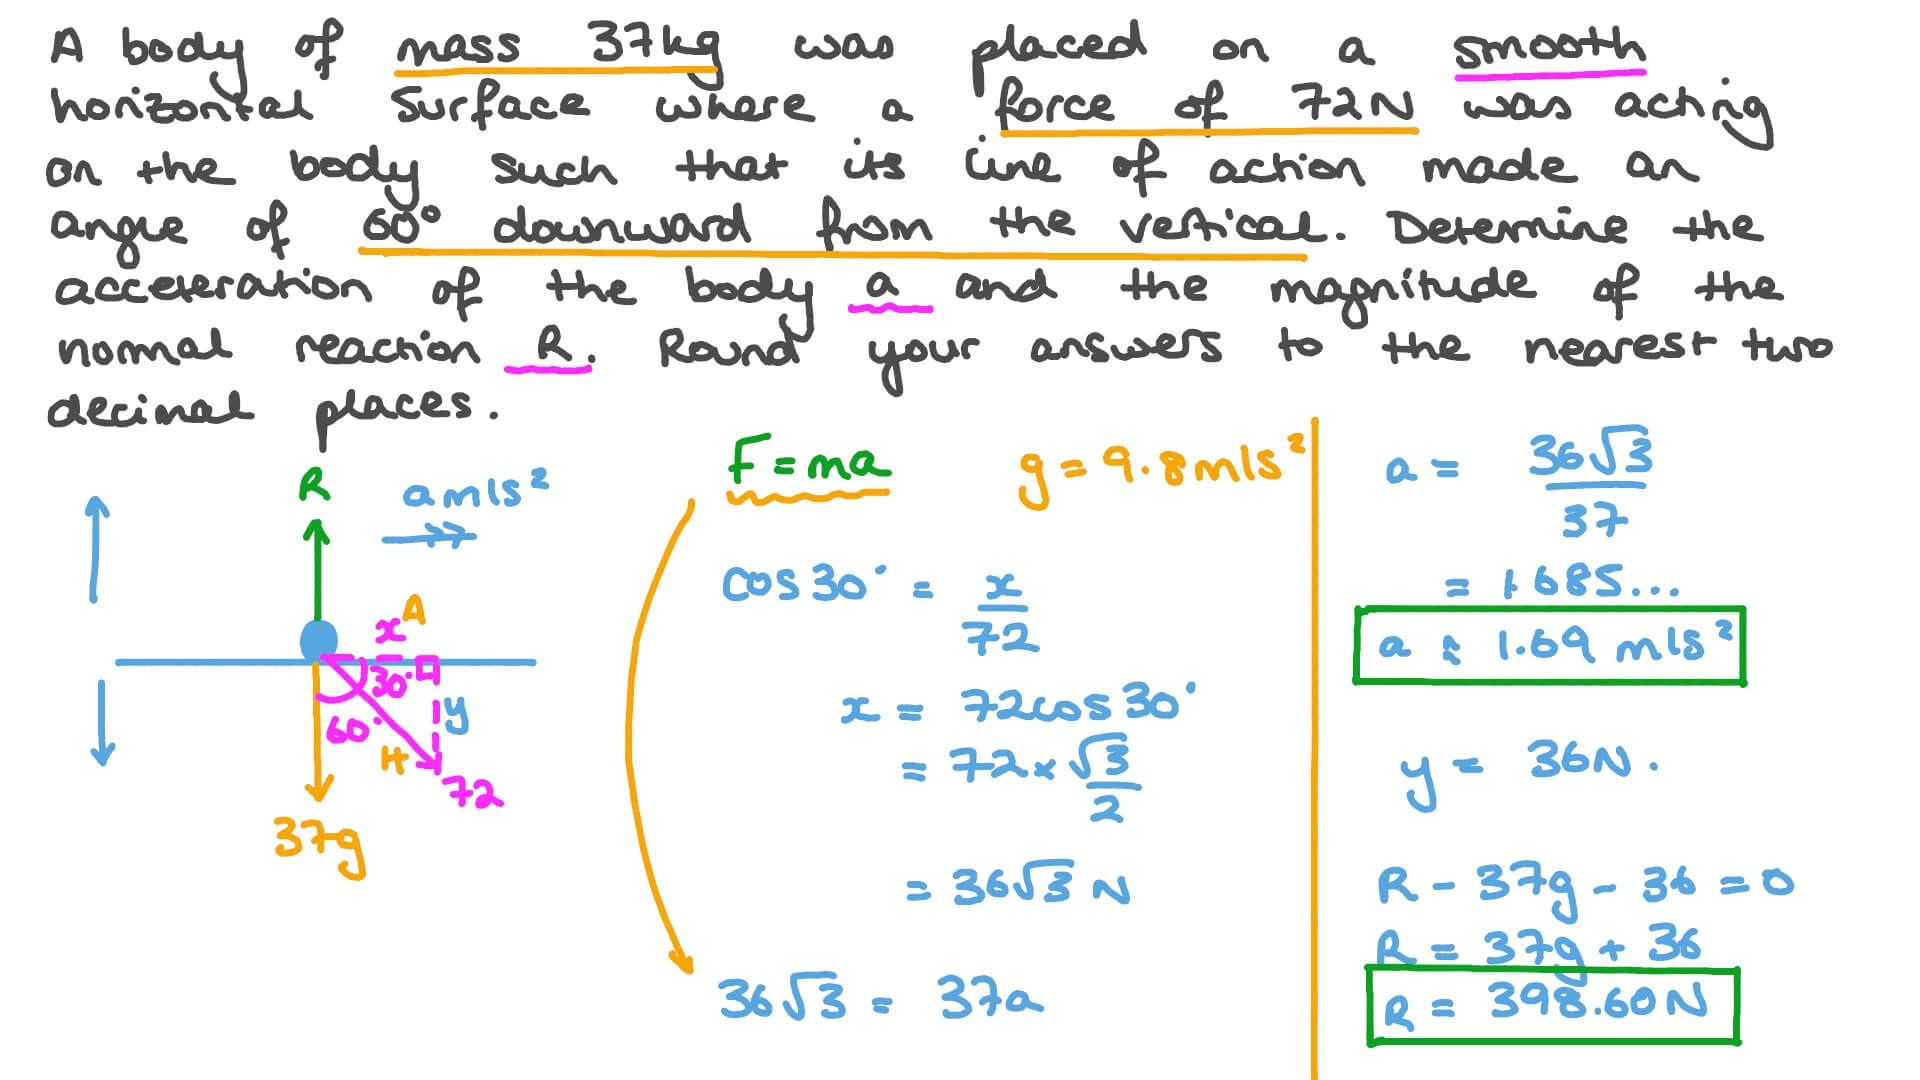 A body of mass 37kg was placed on a smooth
horizontal surface where a force of 72N was acting
on the body such that its line of action made an
angle of 60° downward from the vertical. Determine the
acceleration of the body a and the magnitude of the
normal reaction R. Round your answers to the nearest two
decimal places.
R
a m/s²
A
x
30°
60°
y
H
72
37g
F = ma
g = 9.8 m/s²
cos 30° = x/72
x = 72cos 30°
= 72 × √3/2
= 36√3 N
36√3 = 37a
a = 36√3/37
= 1.685...
a ≈ 1.69 m/s²
y = 36N.
R - 37g - 36 = 0
R = 37g + 36
R = 398.60 N